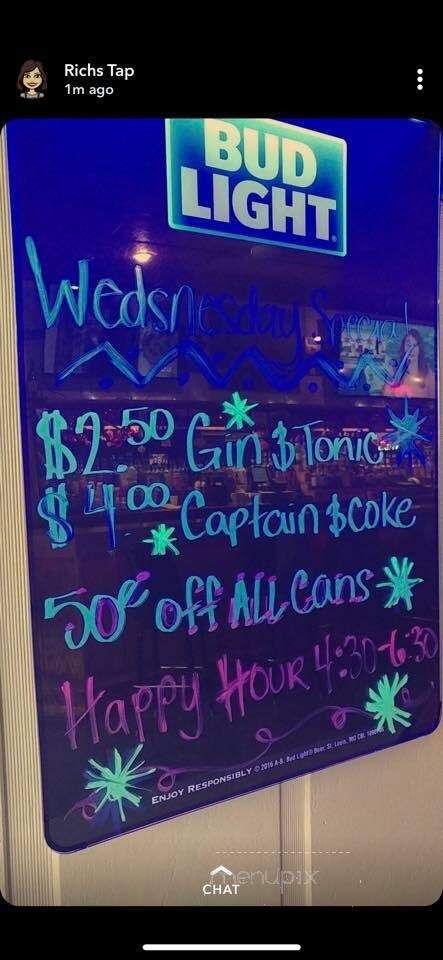 Richs Tap
1m ago
BUD
LIGHT
Wedsnesday Special
$2.50 Gin & Tonic
$4.00 Captain & Coke
50¢ off ALL Cans
Happy Hour 4:30-6:30
ENJOY RESPONSIBLY © 2016 A-B, Bud Light® Beer, St. Louis, MO
CHAT
menupix